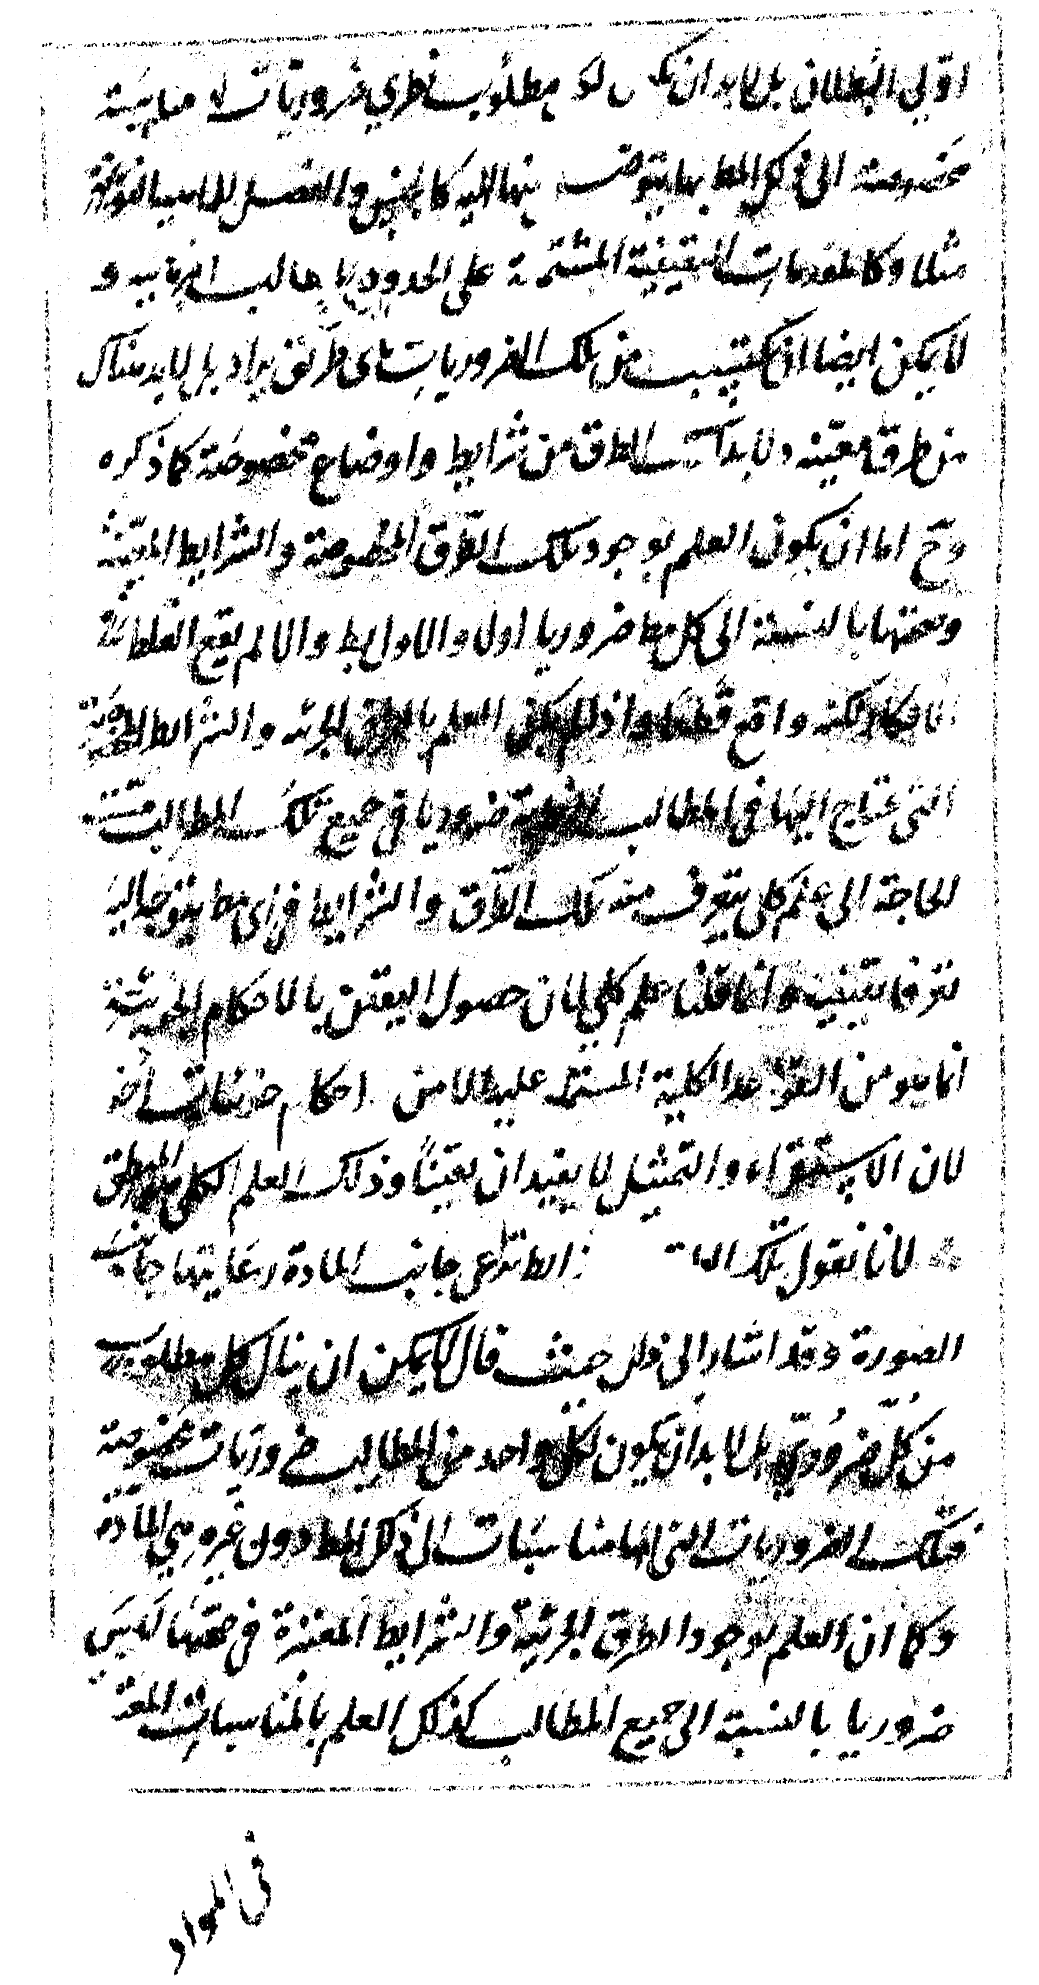 اولى البطلان بل لابد ان يكون لكل مطلوب نظري ضروريات لها مناسبة
مخصوصة الى ذلك المط بها يتوصل منها اليه كالجنس والفصل للماهية النوعية
مثلا وكالمقدمات اليقينية المشتملة على الحدود بالمطالب البرهانية و
لا يمكن ايضا ان يكتسب من تلك الضروريات باى طريق يراد بل لابد هناك
من طرق معينة ولابد لتلك الطرق من شرايط واوضاع مخصوصة كما ذكره
وح اما ان يكون العلم بوجود تلك الطرق المخصوصة والشرايط المعينة
وصحتها بالنسبة الى كل مط ضروريا اولا والاول بط والا لم يقع الغلط
لكنه واقع قطعا واذا لم يكن العلم بالطرق الجزئية والشرايط
التى يحتاج اليها فى المطالب الجزئية ضروريا فى جميع تلك المطالب مست
الحاجة الى علم كلى يتعرف منه تلك الطرق والشرايط فى اى مط يتوجه اليه
تعرفا يقينيا وانما قلنا علم كلى لان حصول اليقين بالاحكام الجزئية
انما هو من القواعد الكلية المشتملة عليها لا من احكام جزئيات اخر
لان الاستقراء والتمثيل لا يفيدان يقينا وذلك العلم الكلى هو المنطق
لانا نقول تلك ترعى جانب المادة رعايتها جانب
الصورة وقد اشار الى ذلك حيث قال لا يمكن ان ينال كل مطلوب
من كل ضرورى بل لابد ان يكون لكل واحد من المطالب ضروريات مخصوصة
فتلك الضروريات التى لها مناسبات الى ذلك المط دون غيره هى المادة
وكما ان العلم بوجود الطرق الجزئية والشرايط المعتبرة فى صحتها ليس
ضروريا بالنسبة الى جميع المطالب كذلك العلم بالمناسبات المعتبرة
فى المواد